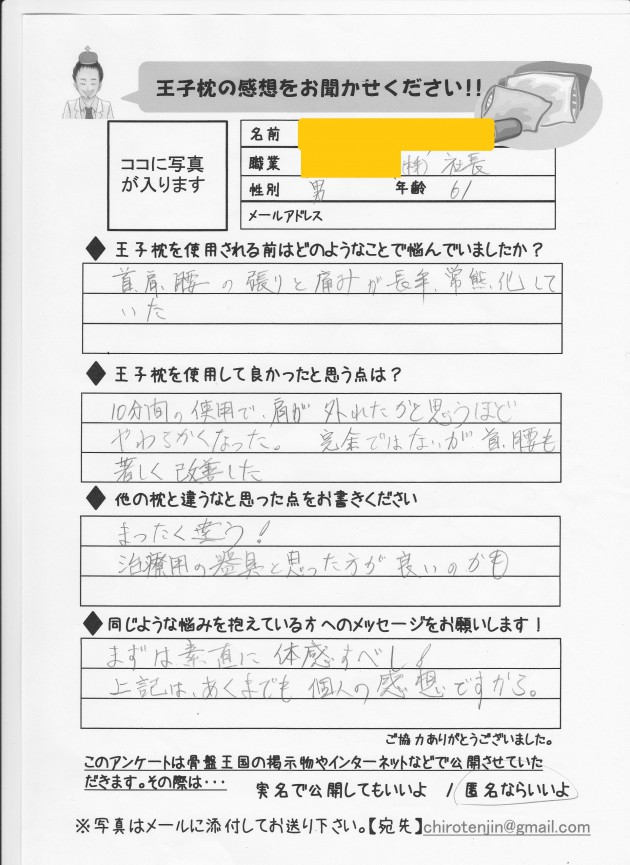 王子枕の感想をお聞かせください!!
ココに写真
が入ります
名前
職業 (株) 社長
性別 男 年齢 61
メールアドレス
◆王子枕を使用される前はどのようなことで悩んでいましたか？
首、肩、腰の張りと痛みが長年、常態化して
いた
◆王子枕を使用して良かったと思う点は？
10分間の使用で、肩が外れたかと思うほど
やわらかくなった。 完全ではないが首、腰も
著しく改善した
◆他の枕と違うなと思った点をお書きください
まったく違う!
治療用の器具と思った方が良いのかも
◆同じような悩みを抱えている方へのメッセージをお願いします！
まずは素直に体感すべし!
上記は、あくまでも個人の感想ですから。
ご協力ありがとうございました。
このアンケートは骨盤王国の掲示物やインターネットなどで公開させていた
だきます。その際は・・・ 実名で公開してもいいよ / 匿名ならいいよ
※写真はメールに添付してお送り下さい。【宛先】chirotenjin@gmail.com